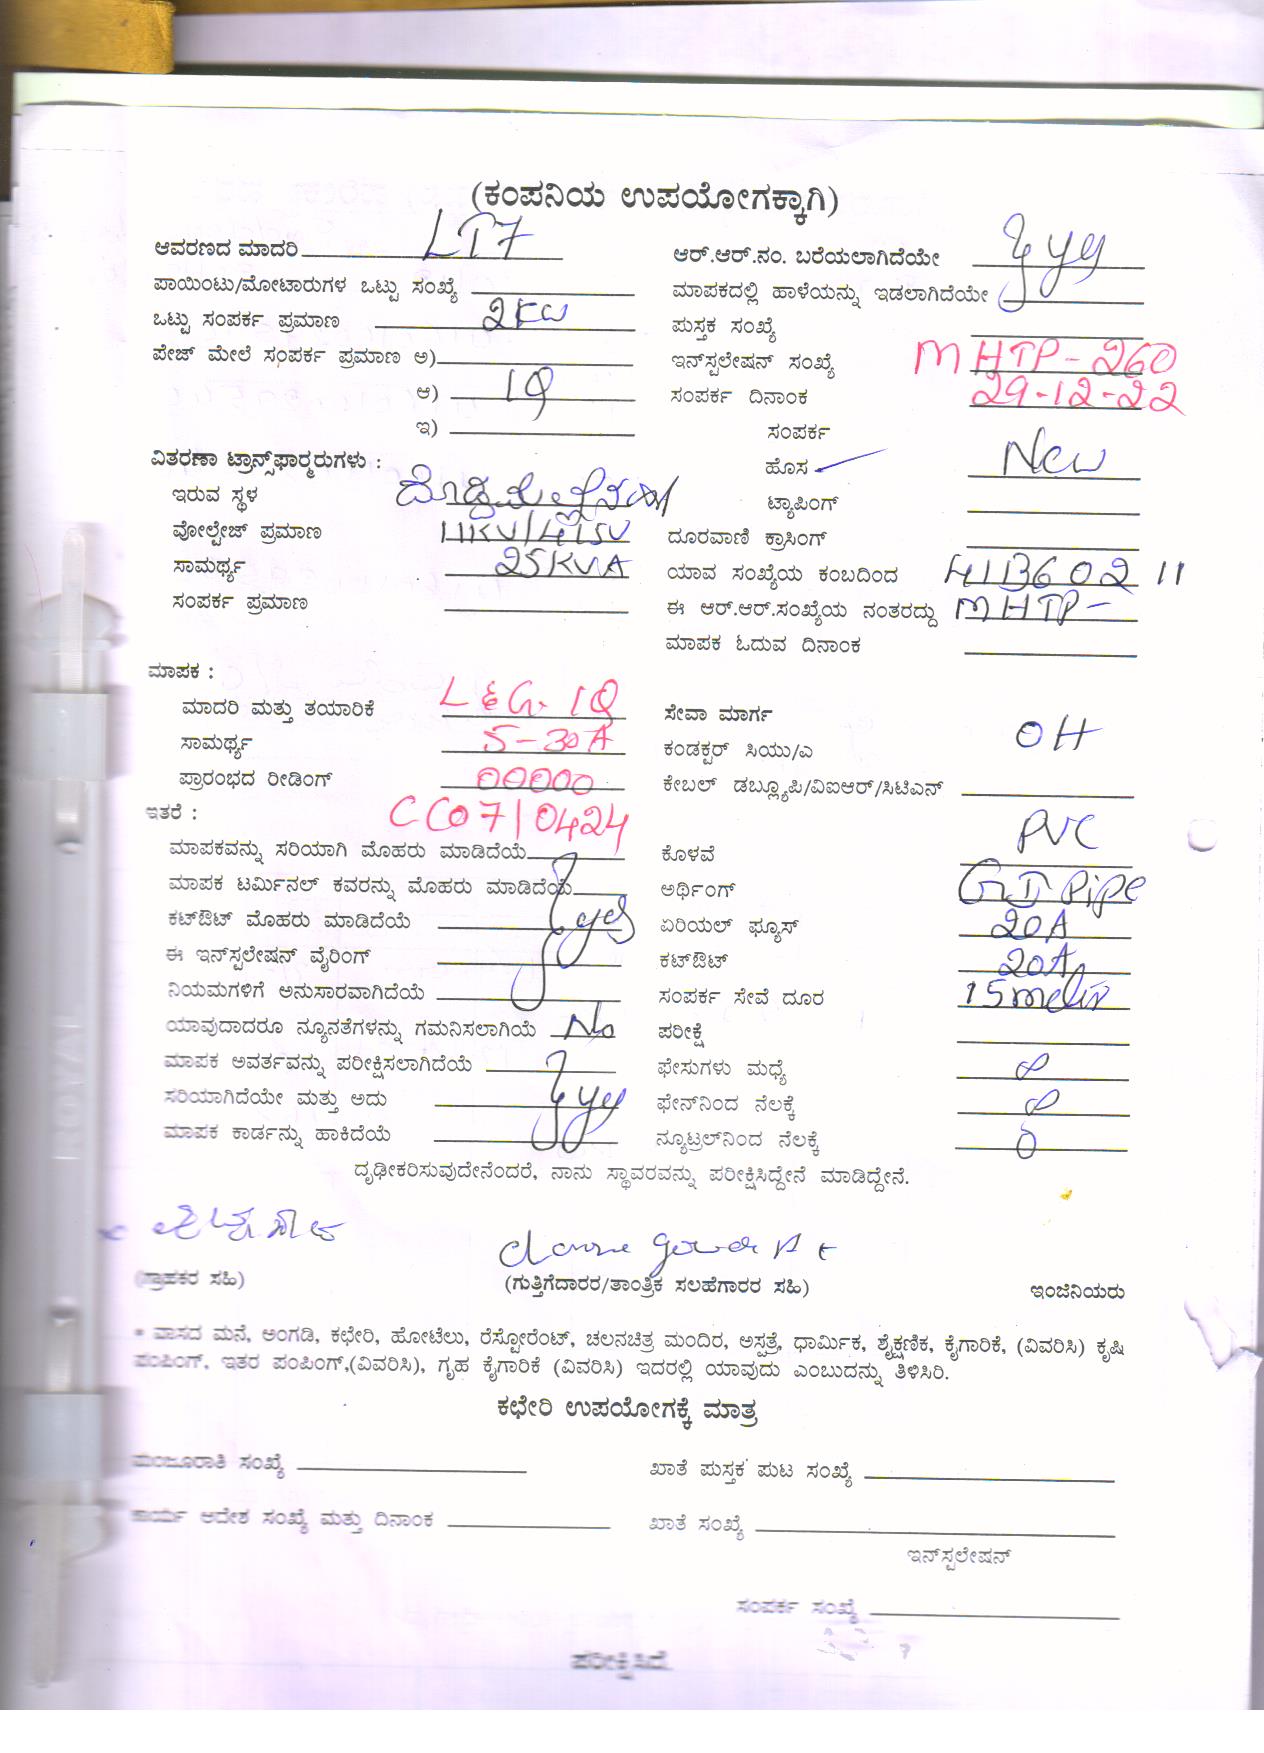 (ಕಂಪನಿಯ ಉಪಯೋಗಕ್ಕಾಗಿ)
ಆವರಣದ ಮಾದರಿ LT7
ಪಾಯಿಂಟು/ಮೋಟಾರುಗಳ ಒಟ್ಟು ಸಂಖ್ಯೆ
ಒಟ್ಟು ಸಂಪರ್ಕ ಪ್ರಮಾಣ 2KW
ಪೇಜ್ ಮೇಲೆ ಸಂಪರ್ಕ ಪ್ರಮಾಣ ಅ)
ಆ) 1Q
ಇ)
ವಿತರಣಾ ಟ್ರಾನ್ಸ್‌ಫಾರ್ಮರುಗಳು :
ಇರುವ ಸ್ಥಳ
ವೋಲ್ಟೇಜ್ ಪ್ರಮಾಣ 11KV/415V
ಸಾಮರ್ಥ್ಯ 25KVA
ಸಂಪರ್ಕ ಪ್ರಮಾಣ
ಆರ್.ಆರ್.ನಂ. ಬರೆಯಲಾಗಿದೆಯೇ
ಮಾಪಕದಲ್ಲಿ ಹಾಳೆಯನ್ನು ಇಡಲಾಗಿದೆಯೇ } yes
ಪುಸ್ತಕ ಸಂಖ್ಯೆ
ಇನ್‌ಸ್ಟಲೇಷನ್ ಸಂಖ್ಯೆ MHTP-260
ಸಂಪರ್ಕ ದಿನಾಂಕ 29-12-22
ಸಂಪರ್ಕ
ಹೊಸ ✓ New
ಟ್ಯಾಪಿಂಗ್
ದೂರವಾಣಿ ಕ್ರಾಸಿಂಗ್
ಯಾವ ಸಂಖ್ಯೆಯ ಕಂಬದಿಂದ
ಈ ಆರ್.ಆರ್.ಸಂಖ್ಯೆಯ ನಂತರದ್ದು MHTP-
ಮಾಪಕ ಓದುವ ದಿನಾಂಕ
ಮಾಪಕ :
ಮಾದರಿ ಮತ್ತು ತಯಾರಿಕೆ L&G. 1Q
ಸಾಮರ್ಥ್ಯ 5-30A
ಪ್ರಾರಂಭದ ರೀಡಿಂಗ್ 00000
ಇತರೆ : CC0710424
ಮಾಪಕವನ್ನು ಸರಿಯಾಗಿ ಮೊಹರು ಮಾಡಿದೆಯೆ
ಮಾಪಕ ಟರ್ಮಿನಲ್ ಕವರನ್ನು ಮೊಹರು ಮಾಡಿದೆಯೆ
ಕಟ್‌ಔಟ್ ಮೊಹರು ಮಾಡಿದೆಯೆ } yes
ಈ ಇನ್‌ಸ್ಟಲೇಷನ್ ವೈರಿಂಗ್
ನಿಯಮಗಳಿಗೆ ಅನುಸಾರವಾಗಿದೆಯೆ
ಯಾವುದಾದರೂ ನ್ಯೂನತೆಗಳನ್ನು ಗಮನಿಸಲಾಗಿಯೆ No
ಮಾಪಕ ಅವರ್ತವನ್ನು ಪರೀಕ್ಷಿಸಲಾಗಿದೆಯೆ
ಸರಿಯಾಗಿದೆಯೇ ಮತ್ತು ಅದು } yes
ಮಾಪಕ ಕಾರ್ಡನ್ನು ಹಾಕಿದೆಯೆ
ಸೇವಾ ಮಾರ್ಗ
ಕಂಡಕ್ಟರ್ ಸಿಯು/ಎ OH
ಕೇಬಲ್ ಡಬ್ಲ್ಯೂಪಿ/ವಿಐಆರ್/ಸಿಟಿಎನ್
ಕೊಳವೆ PVC
ಅರ್ಥಿಂಗ್ GI Pipe
ಏರಿಯಲ್ ಫ್ಯೂಸ್ 20A
ಕಟ್‌ಔಟ್ 20A
ಸಂಪರ್ಕ ಸೇವೆ ದೂರ 15
ಪರೀಕ್ಷೆ
ಫೇಸುಗಳು ಮಧ್ಯೆ ∞
ಫೇನ್‌ನಿಂದ ನೆಲಕ್ಕೆ ∞
ನ್ಯೂಟ್ರಲ್‌ನಿಂದ ನೆಲಕ್ಕೆ 0
ದೃಢೀಕರಿಸುವುದೇನೆಂದರೆ, ನಾನು ಸ್ಥಾವರವನ್ನು ಪರೀಕ್ಷಿಸಿದ್ದೇನೆ ಮಾಡಿದ್ದೇನೆ.
(ಗ್ರಾಹಕರ ಸಹಿ)
(ಗುತ್ತಿಗೆದಾರರ/ತಾಂತ್ರಿಕ ಸಲಹೆಗಾರರ ಸಹಿ)
ಇಂಜಿನಿಯರು
* ವಾಸದ ಮನೆ, ಅಂಗಡಿ, ಕಛೇರಿ, ಹೋಟೆಲು, ರೆಸ್ಟೋರೆಂಟ್, ಚಲನಚಿತ್ರ ಮಂದಿರ, ಅಸ್ಪತ್ರೆ, ಧಾರ್ಮಿಕ, ಶೈಕ್ಷಣಿಕ, ಕೈಗಾರಿಕೆ, (ವಿವರಿಸಿ) ಕೃಷಿ
ಪಂಪಿಂಗ್, ಇತರ ಪಂಪಿಂಗ್,(ವಿವರಿಸಿ), ಗೃಹ ಕೈಗಾರಿಕೆ (ವಿವರಿಸಿ) ಇದರಲ್ಲಿ ಯಾವುದು ಎಂಬುದನ್ನು ತಿಳಿಸಿರಿ.
ಕಛೇರಿ ಉಪಯೋಗಕ್ಕೆ ಮಾತ್ರ
ಮಂಜೂರಾತಿ ಸಂಖ್ಯೆ
ಖಾತೆ ಪುಸ್ತಕ ಪುಟ ಸಂಖ್ಯೆ
ಕಾರ್ಯ ಆದೇಶ ಸಂಖ್ಯೆ ಮತ್ತು ದಿನಾಂಕ
ಖಾತೆ ಸಂಖ್ಯೆ
ಇನ್‌ಸ್ಟಲೇಷನ್
ಸಂಪರ್ಕ ಸಂಖ್ಯೆ
ಪರೀಕ್ಷಿಸಿದೆ